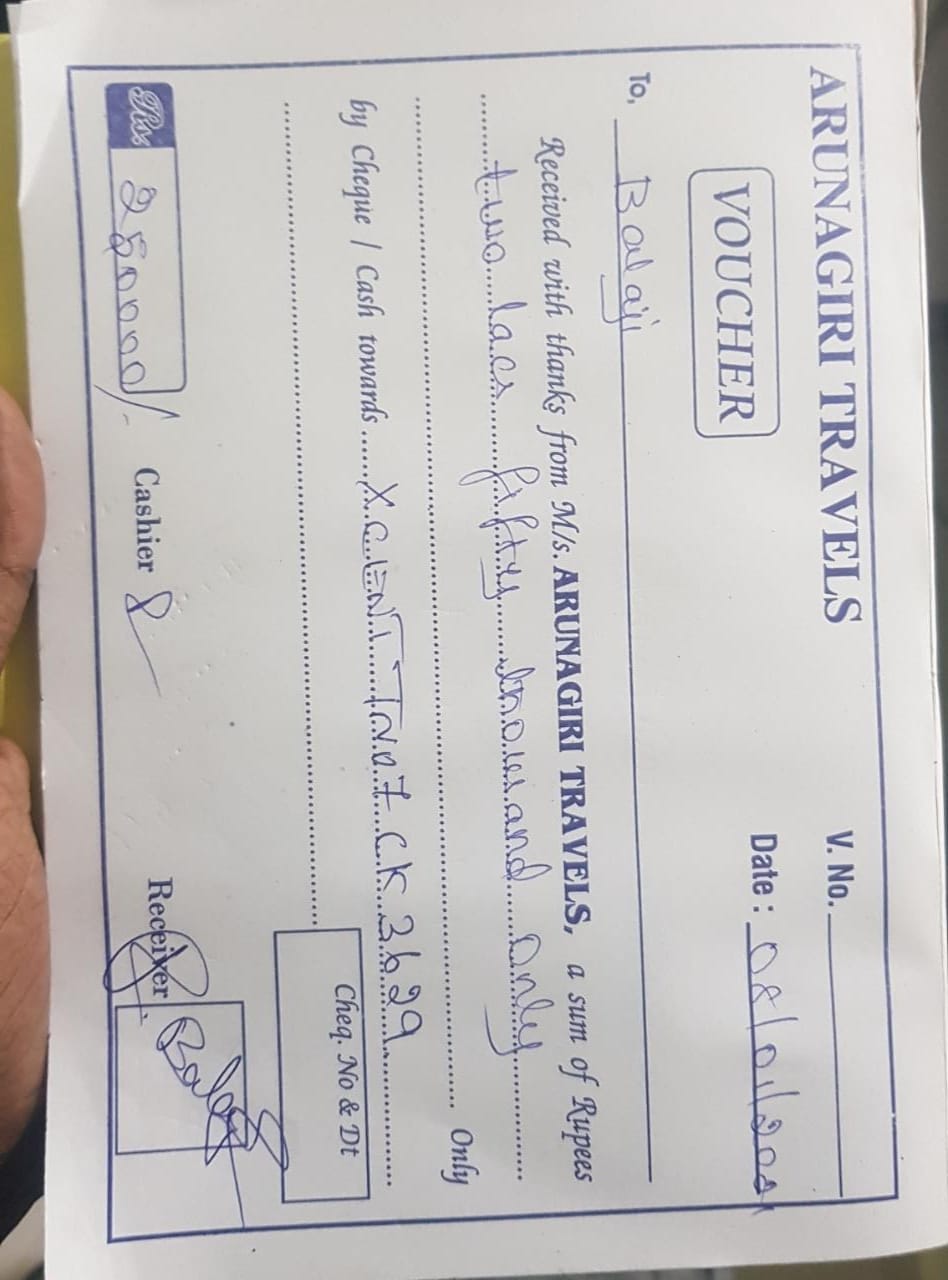 ARUNAGIRI TRAVELS
V. No.
VOUCHER
Date : 08/01/202
To, Balaji
Received with thanks from M/s. ARUNAGIRI TRAVELS, a sum of Rupees
two lacs fifty thousand only
Only
by Cheque / Cash towards XCENT TN07 CK 3629
Cheq. No & Dt
Rs. 250000/-
Cashier
Receiver
Balaji